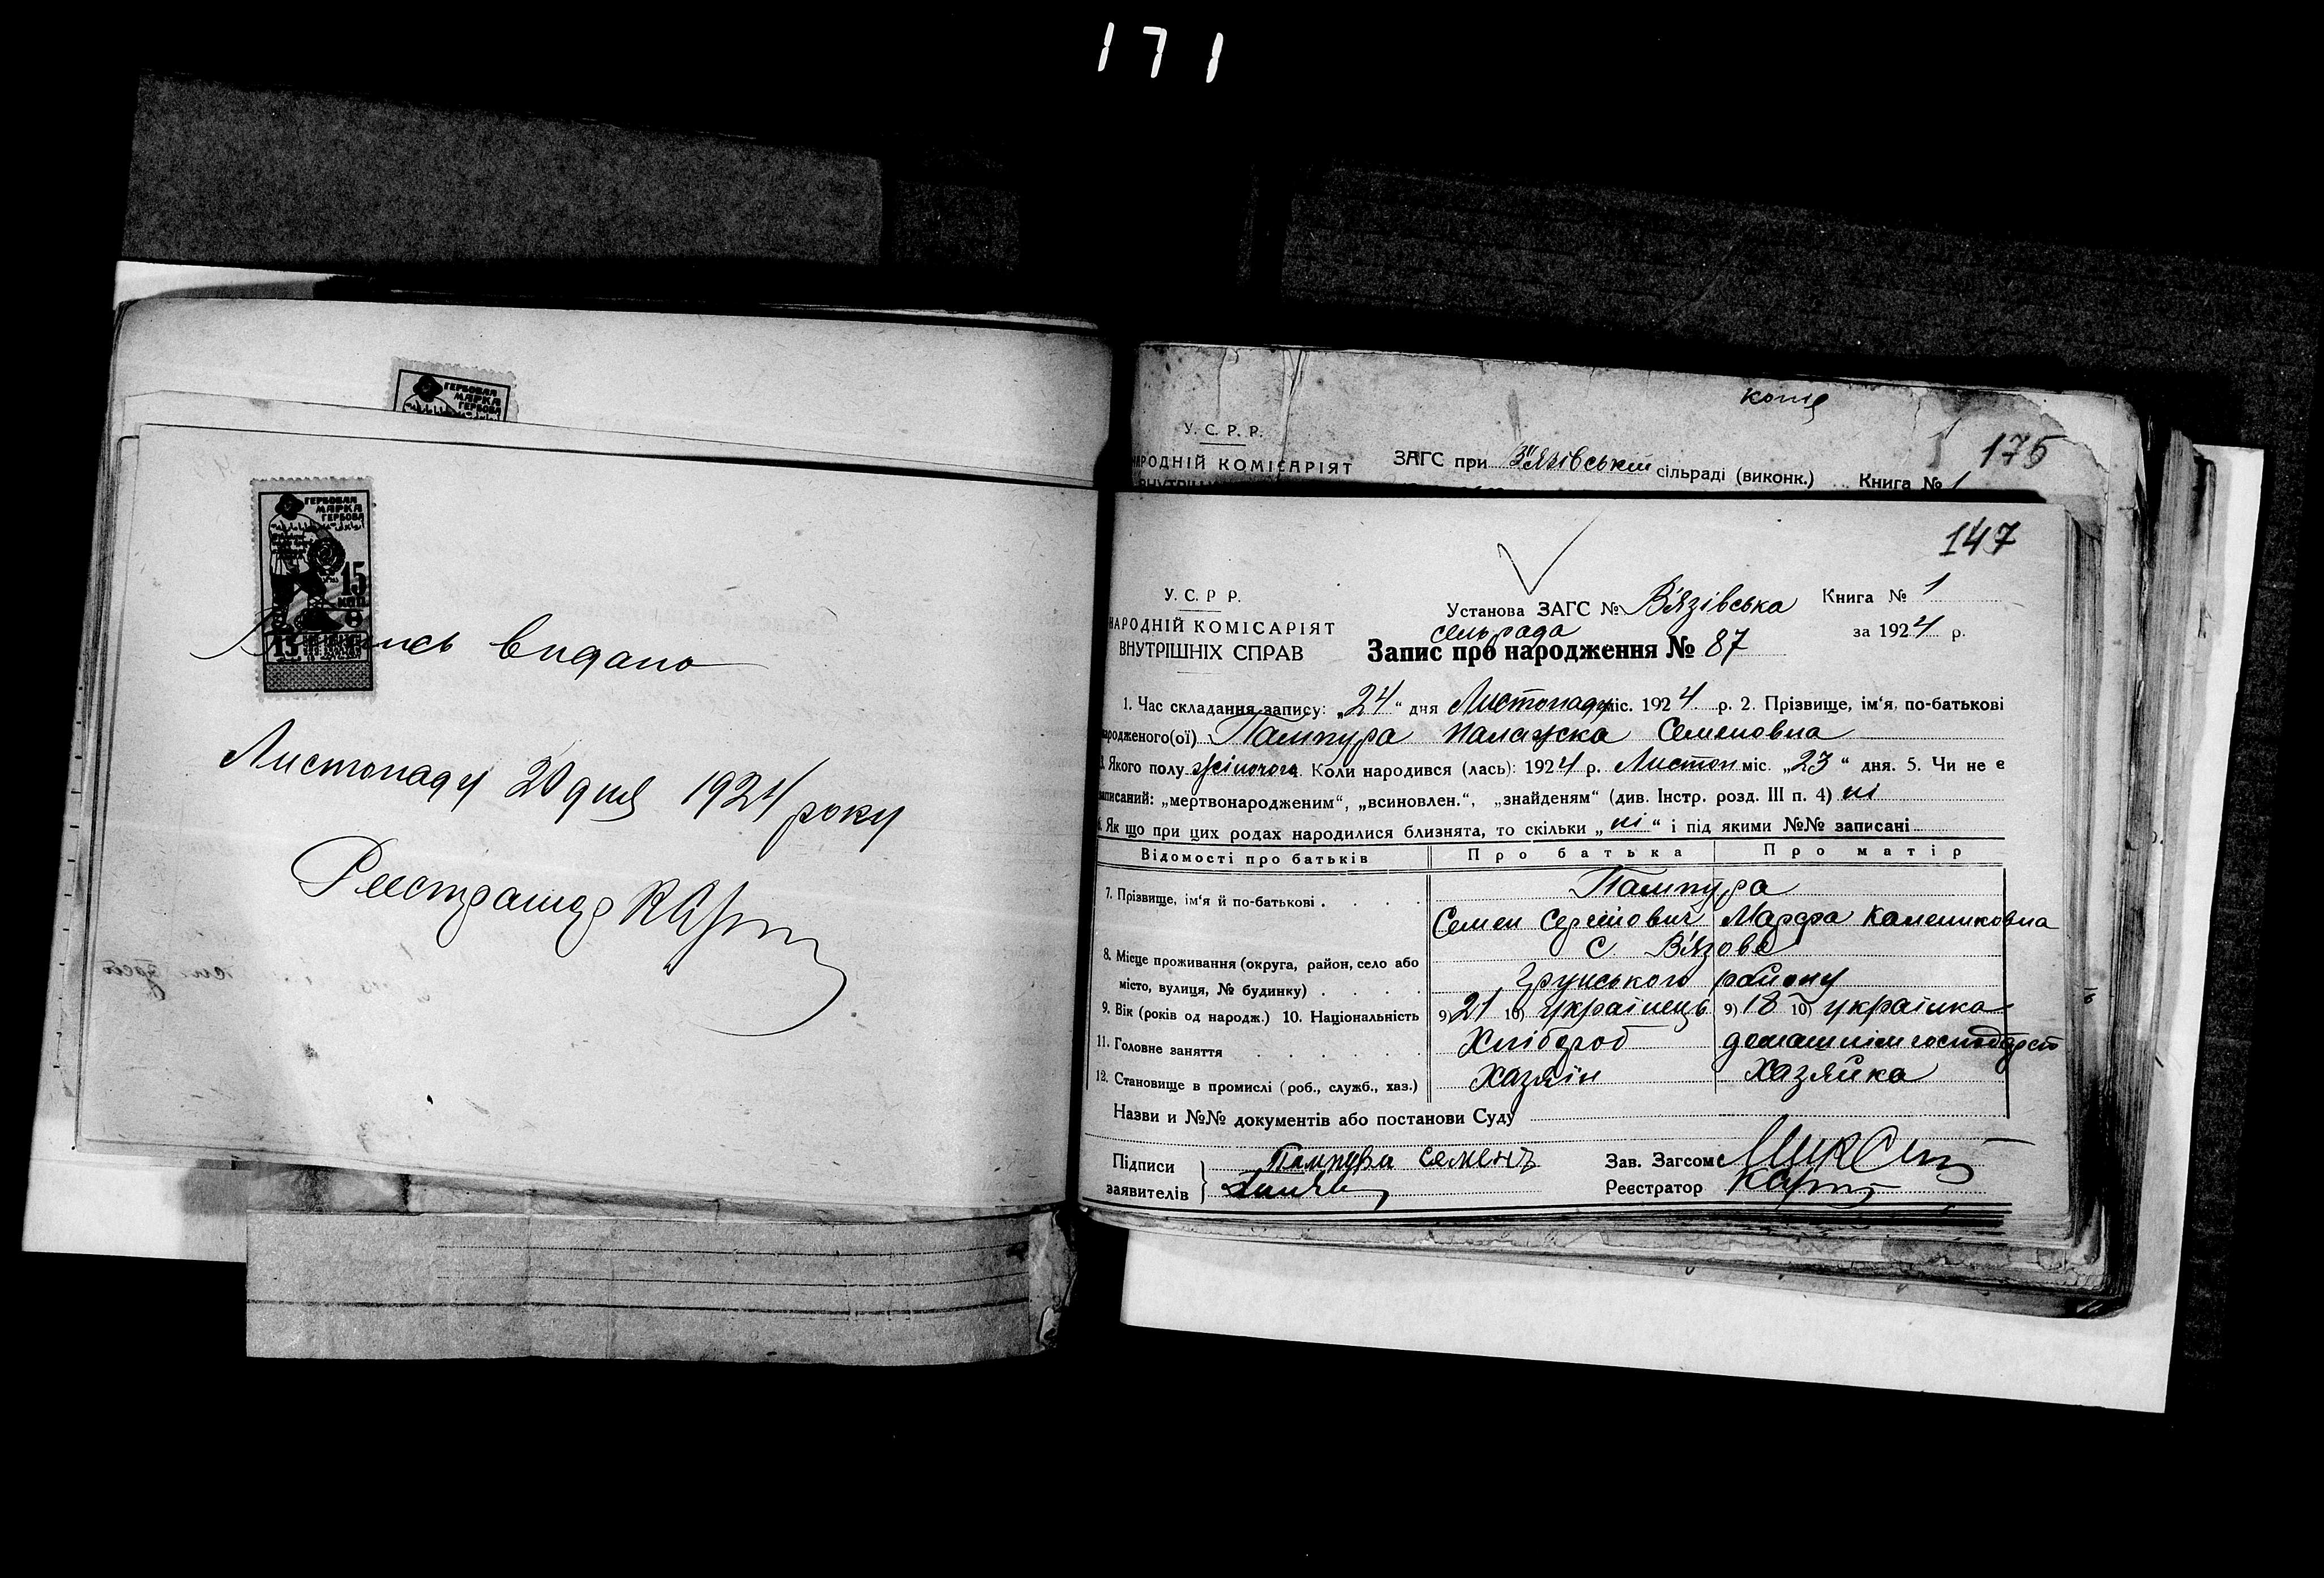 171
ГЕРБОВАЯ
МАРКА
ГЕРБОВА
ГЕРБОВАЯ
МАРКА
ГЕРБОВА
15
КОП
15
видано
Листопаду 20 дня 1924 року
Реєстратор
копія
У. С. Р. Р.
НАРОДНІЙ КОМІСАРІЯТ
ЗАГС при В'язівській сільраді (виконк.) Книга № 1
175
147
У. С. Р Р.
НАРОДНІЙ КОМІСАРІЯТ
ВНУТРІШНІХ СПРАВ
Установа ЗАГС № В'язівська Книга № 1
сельрада
за 1924 р.
Запис про народження № 87
1. Час складання запису: „24“ дня Листопаду міс. 1924 р. 2. Прізвище, ім'я, по-батькові
народженого(ої) Пампура Палажка Семеновна
3. Якого полу жіночого. Коли народився (лась): 1924 р. Листоп міс. „23“ дня. 5. Чи не є
записаний: „мертвонародженим“, „всиновлен.“, „знайденям“ (див. Інстр. розд. III п. 4) ні
6. Як що при цих родах народилися близнята, то скільки „ні“ і під якими №№ записані
Відомості про батьків Про батька Про матір
7. Прізвище, ім'я й по-батькові . . . .
Пампура
Семен Сергійович Марфа Калениковна
8. Місце проживання (округа, район, село або
місто, вулиця, № будинку) . . . .
с. В'язове
Грунського району
9. Вік (років од народж.) 10. Національність 9) 21 10) українець 9) 18 10) українка
11. Головне заняття . . . . . . Хлібороб домашнім господарств
12. Становище в промислі (роб., служб., хаз.) Хазяїн Хазяйка
Назви и №№ документів або постанови Суду
Підписи
заявителів
Пампура Семенъ
Зав. Загсом
Реєстратор